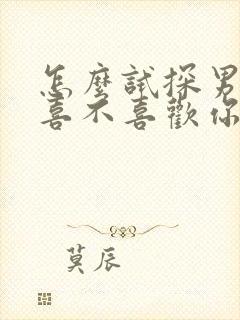 怎麼試探男
喜不喜歡你
莫辰